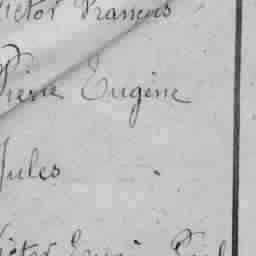 Victor François
Pierre Eugène
Jules
Victor